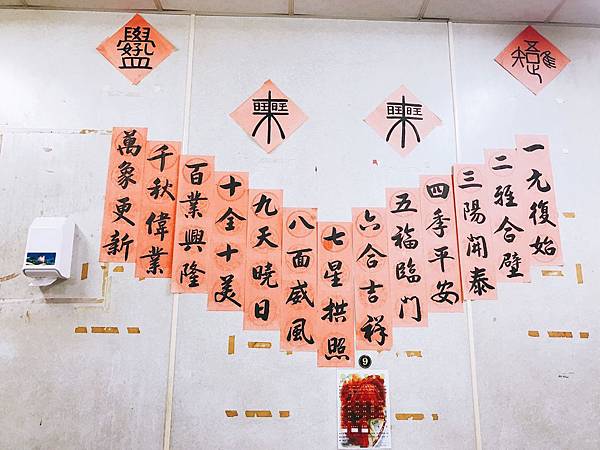 唯吾知足
學好孔孟
一元復始
二雅合璧
三陽開泰
四季平安
五福臨門
六合吉祥
七星拱照
八面威風
九天曉日
十全十美
百業興隆
千秋偉業
萬象更新
9